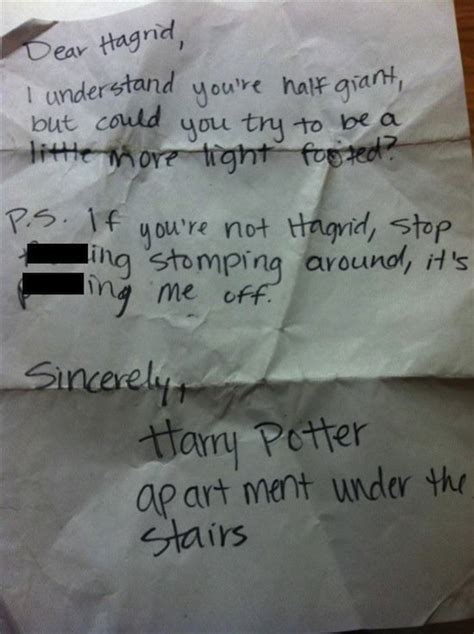 Dear Hagrid,
I understand you're half giant,
but could you try to be a
little more light footed?
P.S. If you're not Hagrid, stop
ing stomping around, it's
ing me off.
Sincerely,
Harry Potter
apartment under the
stairs